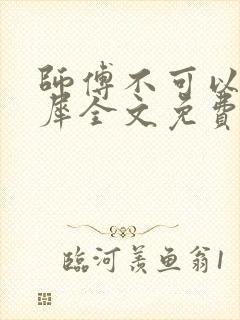 師傅不可以
犀全文免費
臨河羨魚翁1